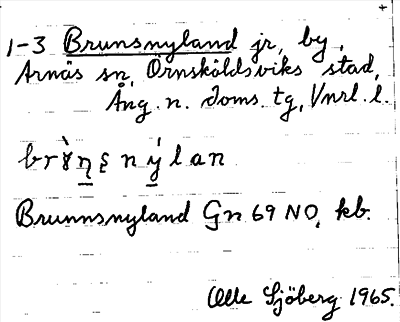 1-3 Brunsnyland jr, by,
Arnäs sn, Örnsköldsviks stad,
Ång. n. doms. tg, Vnrl. l.
Brunnsnyland Gn 69 NO, kb.
Olle Sjöberg 1965.